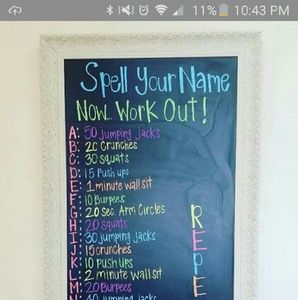 11% 10:43 PM
Spell Your Name
Now.. Work Out!
A: 50 jumping jacks
B: 20 crunches
C: 30 squats
D: 15 Push ups
E: 1 minute wall sit
F: 10 Burpees
G: 20 sec. Arm Circles
H: 20 squats
I: 30 jumping jacks
J: 15 crunches
K: 10 Push Ups
L: 2 minute wall sit
M: 20 Burpees
REPE